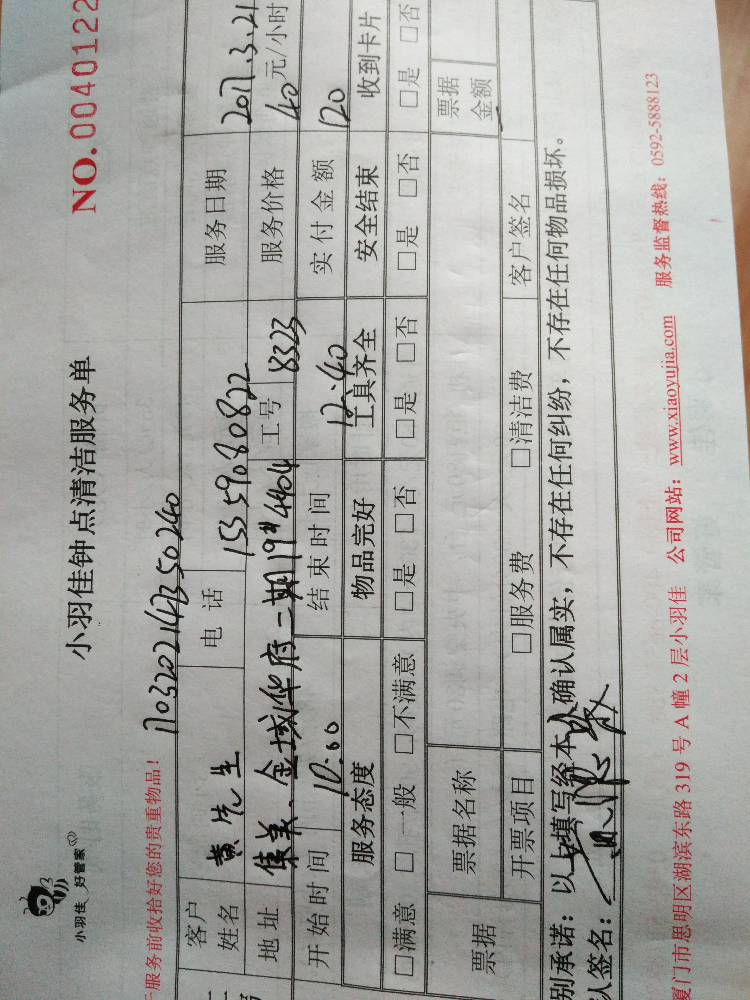 小羽佳 好管家
小羽佳钟点清洁服务单
NO.0040122
服务前收拾好您的贵重物品!
1703202142350240
客户姓名 黄先生 电话 15359080822 服务日期 2017.3.21
地址 集美.金域华府二期19#4404 工号 8323 服务价格 40元/小时
开始时间 10.00 结束时间 12:40 实付金额 120
服务态度 物品完好 工具齐全 安全结束 收到卡片
□满意 □一般 □不满意 □是 □否 □是 □否 □是 □否 □是 □否
票据 票据名称 票据金额
开票项目 □服务费 □清洁费 客户签名
别承诺:以上填写经本人确认属实,不存在任何纠纷,不存在任何物品损坏。
人签名:
厦门市思明区湖滨东路 319 号 A 幢 2 层小羽佳 公司网站:www.xiaoyujia.com 服务监督热线:0592-5888123